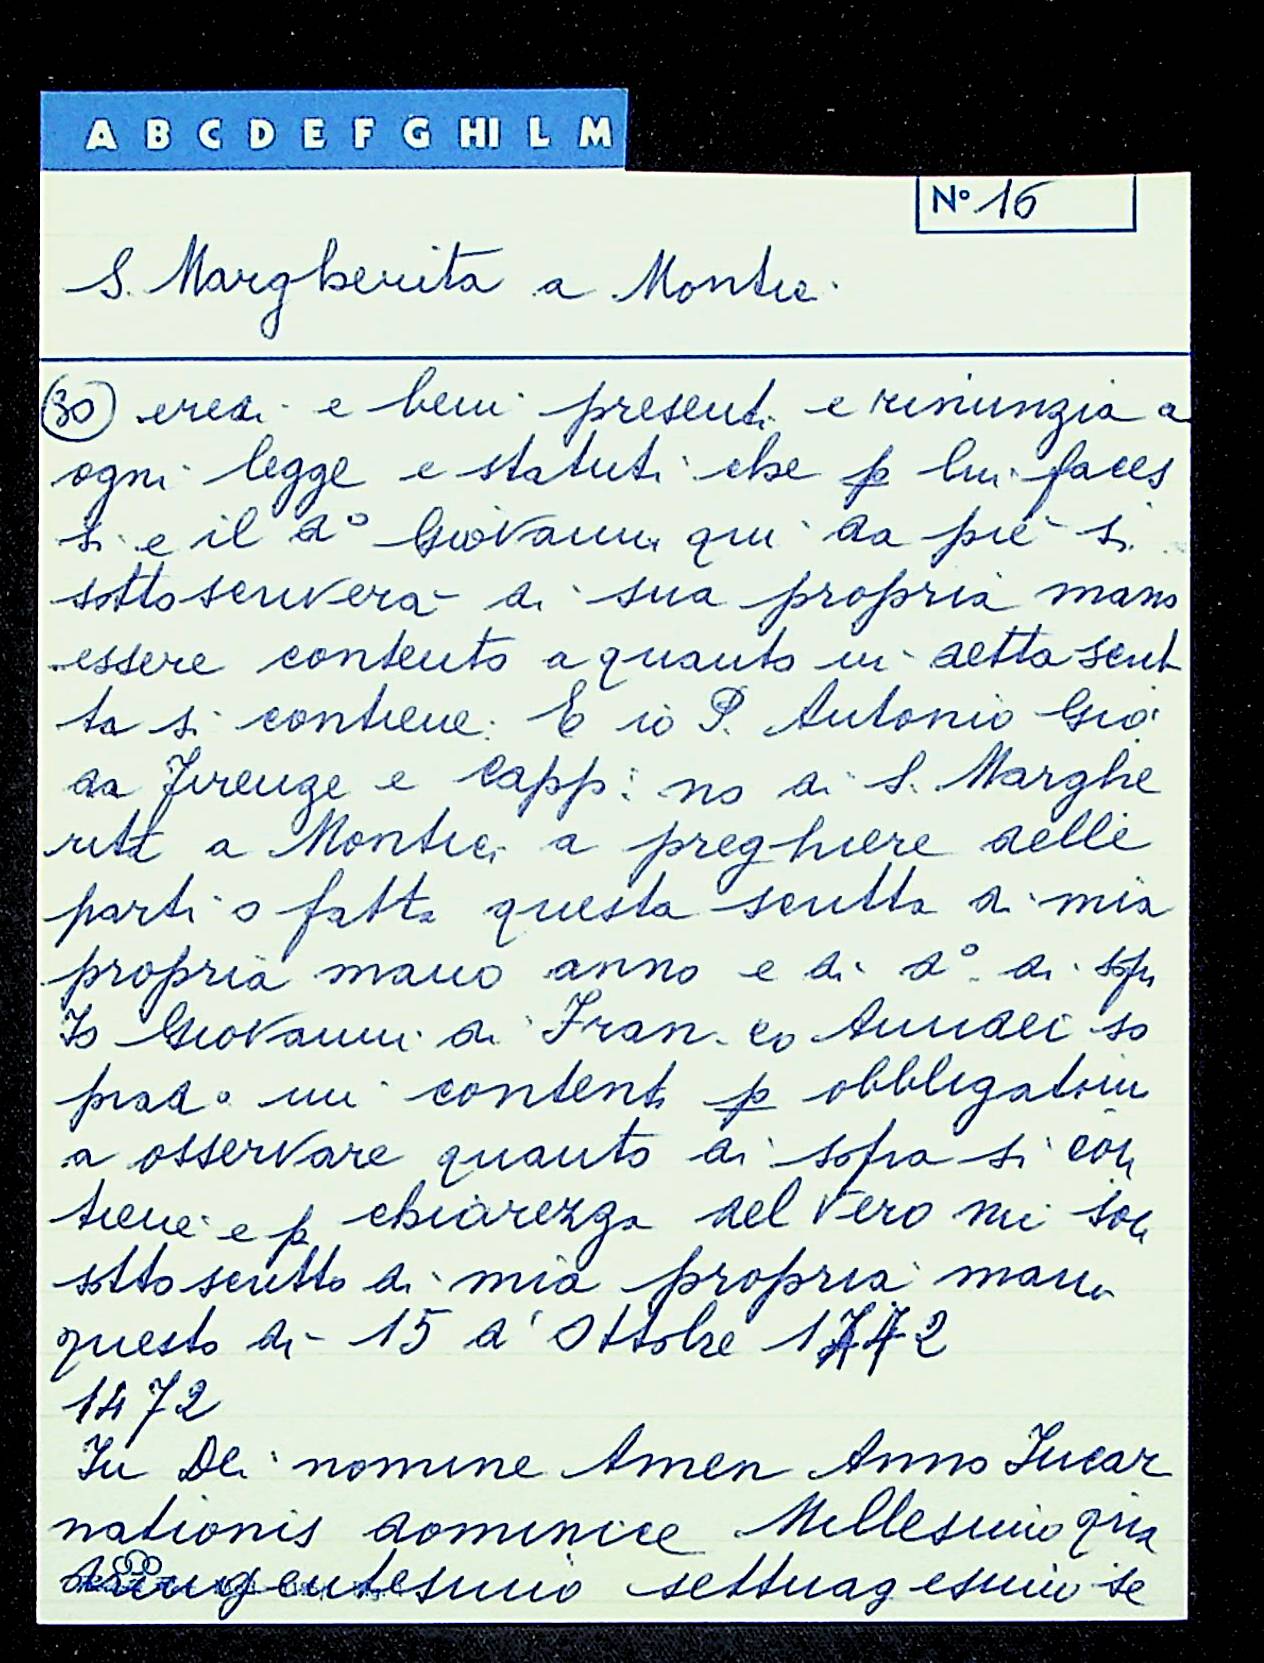 A B C D E F G HI L M
N° 16
S. Margherita a Montici
(30) eredi e beni presenti e rinunzia a
ogni legge e statuti che p lui faces
si e il d° Giovanni qui da piè si
sottoscriverà di sua propria mano
essere contento a quanto in detta scrit
ta si contiene. E io P. Antonio Gio:
da Firenze e Capp: no di S. Marghe
rita a Montici a preghiere delle
parti o fatta questa scritta di mia
propria mano anno e di d° di sopra
Io Giovanni di Fran. co Amidei so
prad° mi contento p obbligatiin
a osservare quanto di sopra si con
tiene e p chiarezza del vero mi son
sottoscritto di mia propria mano
questo di 15 d' Ottobre 1472
1472
In Dei nomine Amen Anno Incar
nationis dominice Millesimo qua
dringentesimo settuagesimo se